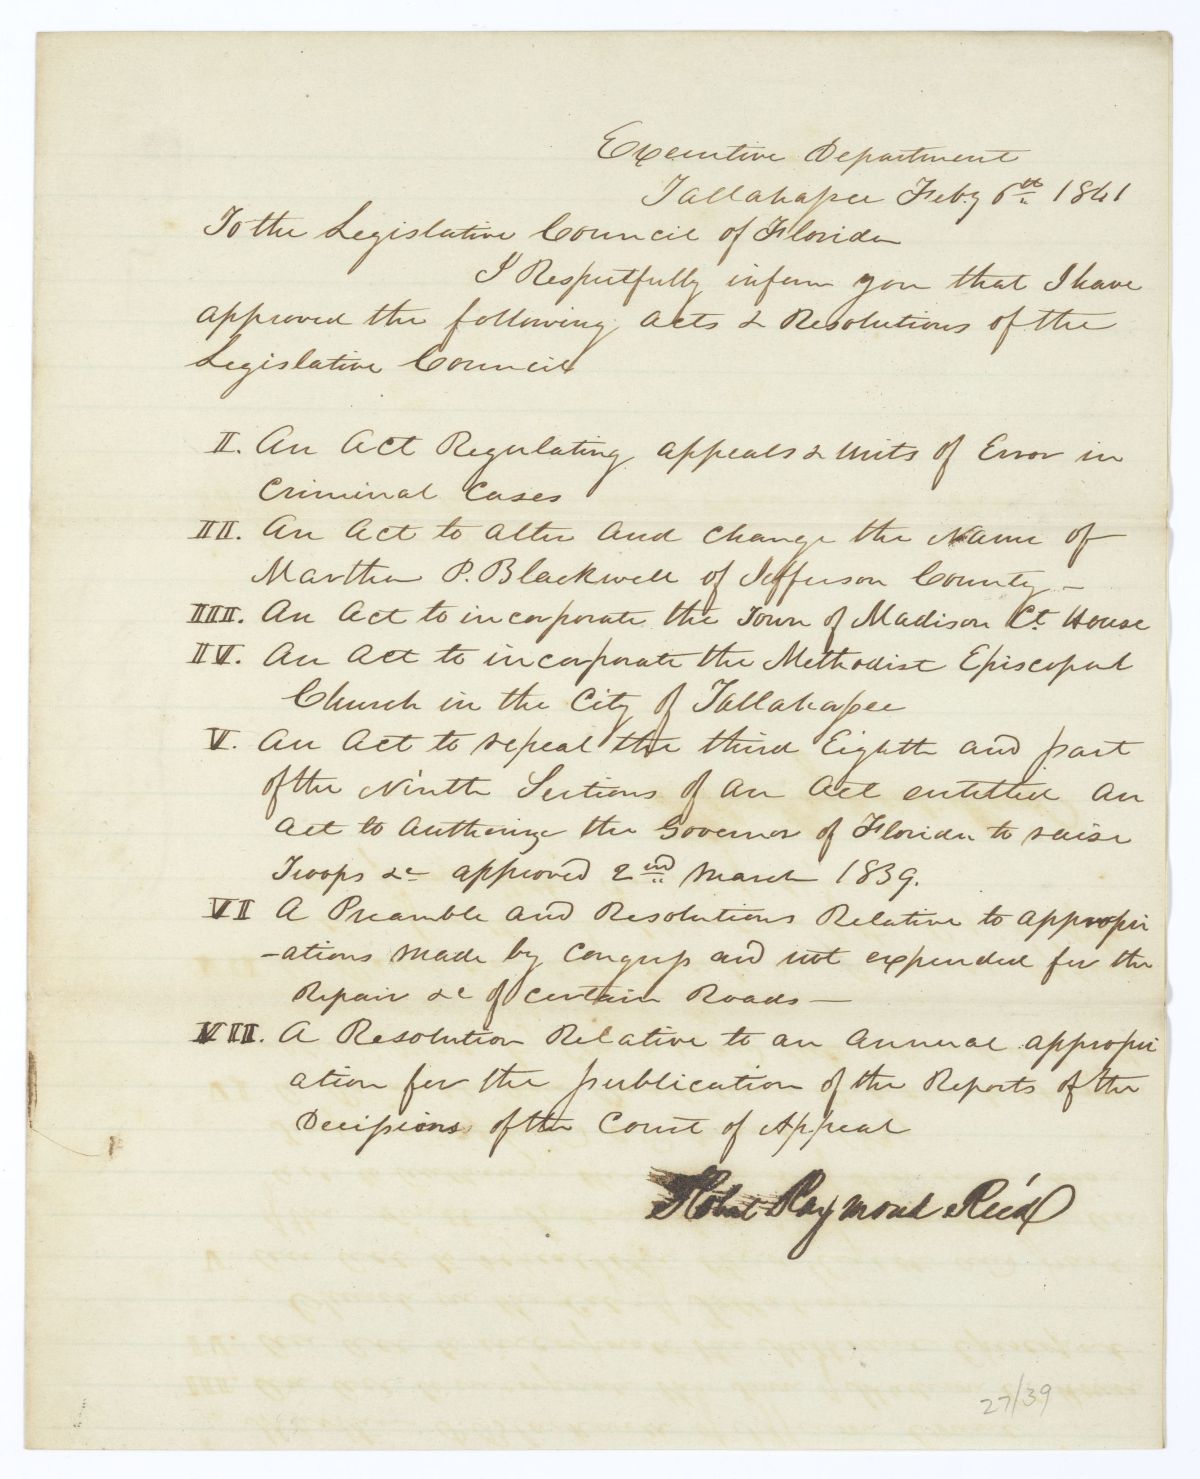 Executive Department
Tallahassee Feby 6th 1841
To the Legislative Council of Florida
I Respectfully inform you that I have
approved the following acts & Resolutions of the
Legislative Council
I. An Act Regulating appeals & writs of Error in
Criminal Cases
II. An Act to alter and change the Name of
Martha P. Blackwell of Jefferson County —
III. An Act to incorporate the Town of Madison Ct. House
IV. An Act to incorporate the Methodist Episcopal
Church in the City of Tallahassee
V. An Act to repeal the third Eighth and part
of the Ninth Sections of an Act entitled an
act to Authorize the Governor of Florida to raise
Troops &c approved 2nd March 1839.
VI A Preamble and Resolutions Relative to appropri
-ations made by Congress and not expended for the
Repair &c of certain Roads —
VII. A Resolution Relative to an annual appropri
ation for the publication of the Reports of the
Decisions of the Court of Appeal
Robert Raymond Reid
27/39